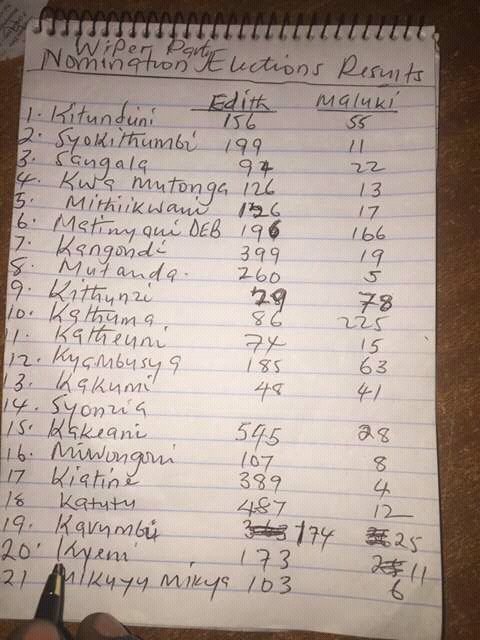 Wiper Party
Nomination Elections Results
Edith Maluki
1. Kitunduni 156 55
2. Syokithumbi 199 11
3. Sangala 97 22
4. Kwa mutonga 126 13
5. Mithiikwani 126 17
6. Matinyani DEB 196 166
7. Kangondi 399 19
8. Mutanda. 260 5
9. Kithunzi 29 78
10. Kathuma 86 225
11. Katheuni 74 15
12. Kyambusya 185 63
13. Kakumi 48 41
14. Syonzia
15. Kakeani 545 28
16. Miwongoni 107 8
17 Kiatine 389 4
18 Katutu 487 12
19. Kavumbu 174 25
20. Kyeni 173 11
21 Mikuyu Mikya 103 6